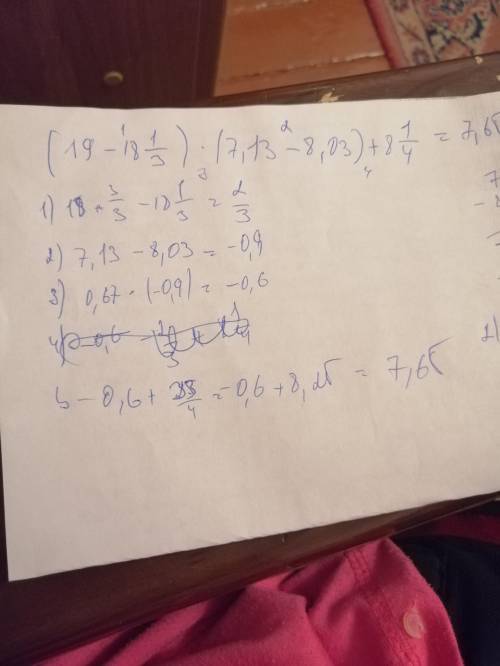 (19 - 18 1/3) · (7,13 - 8,03) + 8 1/4 = 7,65
1) 18 3/3 - 18 1/3 = 2/3
2) 7,13 - 8,03 = -0,9
3) 0,67 · (-0,9) = -0,6
- 0,6 + 33/4 = -0,6 + 8,25 = 7,65
2)